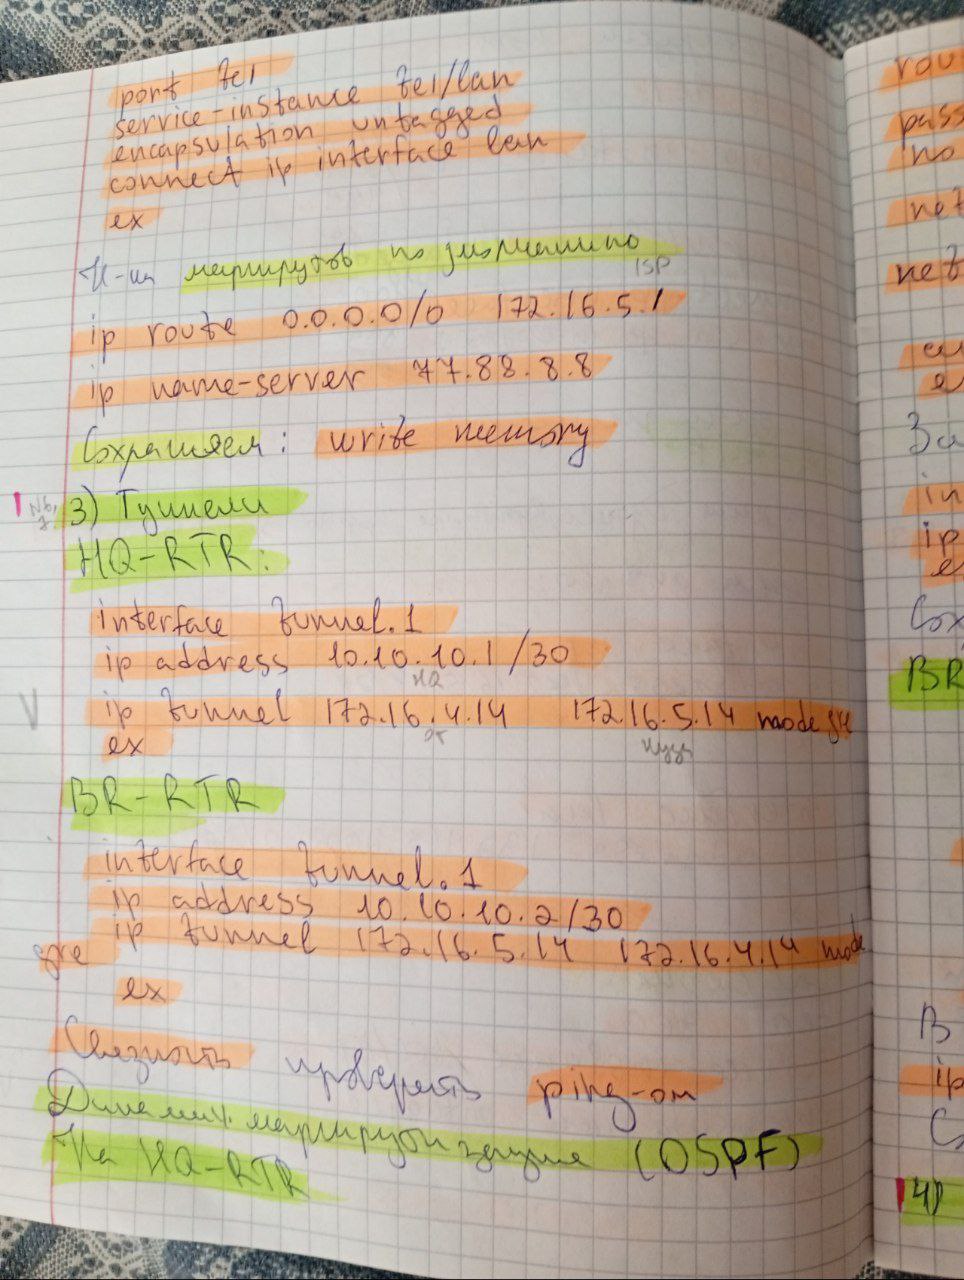 port te1
service-instance te1/lan
encapsulation untagged
connect ip interface lan
ex
Н-ка маршрутов по умолчанию
ISP
ip route 0.0.0.0/0 172.16.5.1
ip name-server 77.88.8.8
Сохраняем: write memory
3) Туннели
HQ-RTR:
interface tunnel.1
ip address 10.10.10.1/30
HQ
ip tunnel 172.16.4.14 172.16.5.14 mode gre
от куда
ex
BR-RTR
interface tunnel.1
ip address 10.10.10.2/30
ip tunnel 172.16.5.14 172.16.4.14 mode
gre
ex
Связность проверять ping-ом
Динамич. маршрутизация (OSPF)
На HQ-RTR
rou
pass
no
net
net
ex
За
in
ip
ex
Сох
BR
В
ip
С
4)